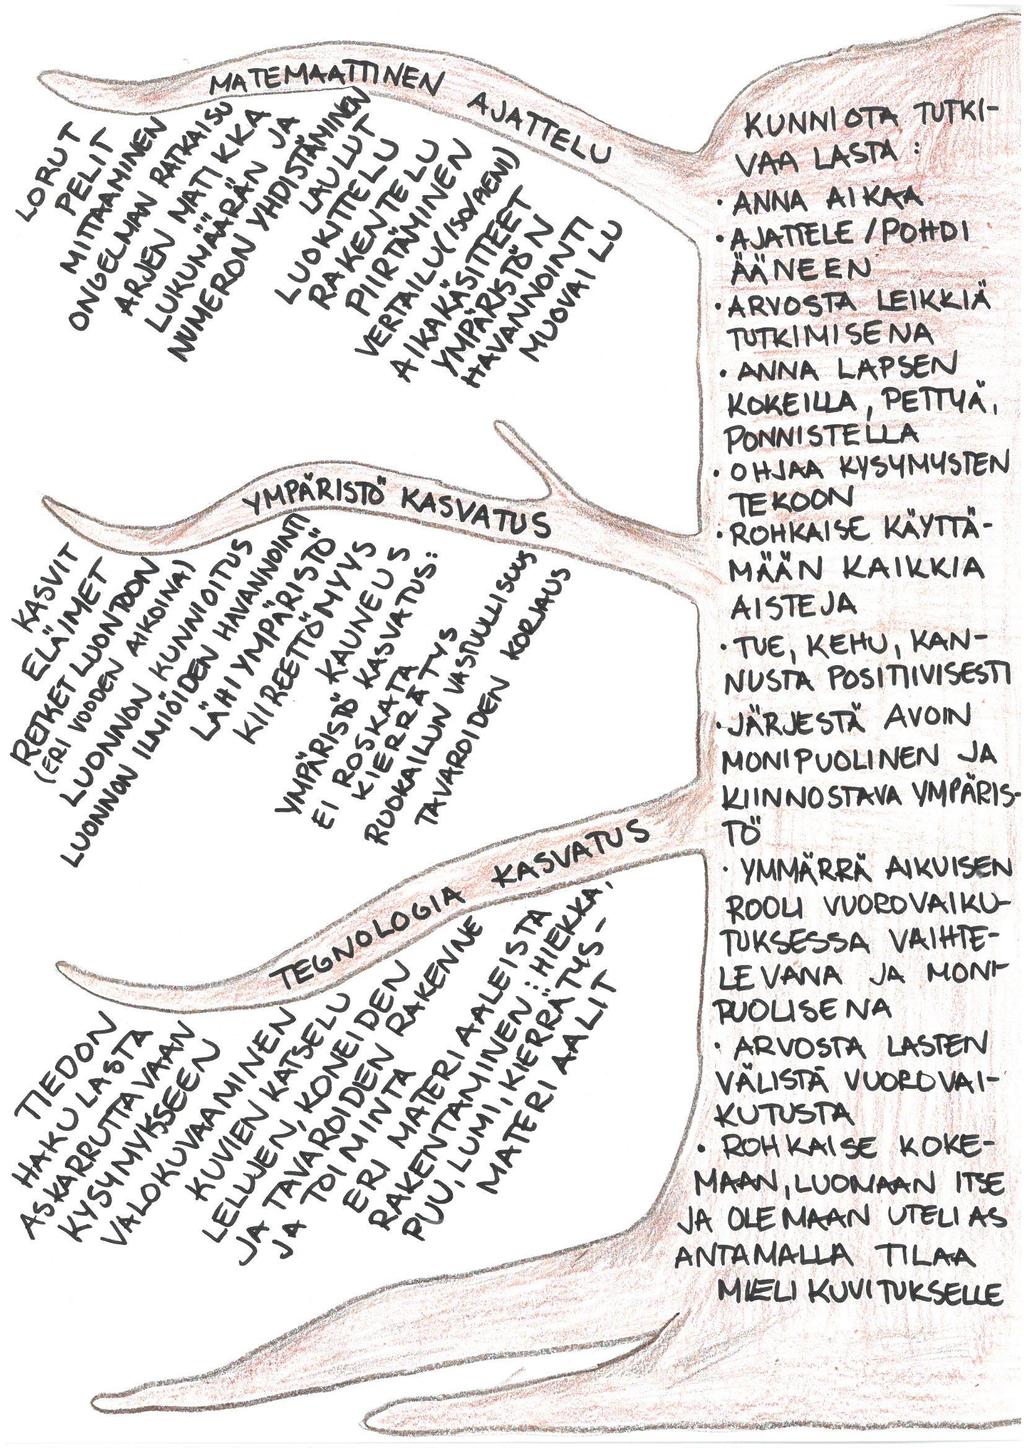 MATEMAATTINEN AJATTELU
LORUT
PELIT
MITTAAMINEN
ONGELMAN RATKAISU
ARJEN MATIKKA
LUKUMÄÄRÄN JA
NUMERON YHDISTÄMINEN
LAULUT
LUOKITTELU
RAKENTELU
PIIRTÄMINEN
VERTAILU (ISO/PIENI)
AIKAKÄSITTEET
YMPÄRISTÖN
HAVANNOINTI
MUOVAILU
YMPÄRISTÖ KASVATUS
KASVIT
ELÄIMET
RETKET LUONTOON
(ERI VUODEN AIKOINA)
LUONNON KUNNIOITUS
LUONNON ILMIÖIDEN HAVANNOINTI
LÄHI YMPÄRISTÖ
KIIREETTÖMYYS
KAUNEUS
YMPÄRISTÖ KASVATUS:
EI ROSKATA
KIERRÄTYS
RUOKAILUN VASTUULLISUUS
TAVAROIDEN KORJAUS
TEGNOLOGIA KASVATUS
TIEDON
HAKU LASTA
ASKARRUTTAVAAN
KYSYMYKSEEN
VALOKUVAAMINEN
KUVIEN KATSELU
LELUJEN, KONEIDEN
JA TAVAROIDEN RAKENNE
JA TOIMINTA
ERI MATERIAALEISTA
RAKENTAMINEN: HIEKKA,
PUU, LUMI, KIERRÄTYS-
MATERIAALIT
KUNNIOTA TUTKI-
VAA LASTA :
• ANNA AIKAA
• AJATTELE / POHDI
ÄÄNEEN
• ARVOSTA LEIKKIÄ
TUTKIMISENA
• ANNA LAPSEN
KOKEILLA, PETTYÄ,
PONNISTELLA
• OHJAA KYSYMYSTEN
TEKOON
• ROHKAISE KÄYTTÄ-
MÄÄN KAIKKIA
AISTEJA
• TUE, KEHU, KAN-
NUSTA POSITIIVISESTI
• JÄRJESTÄ AVOIN
MONIPUOLINEN JA
KIINNOSTAVA YMPÄRIS-
TÖ
• YMMÄRRÄ AIKUISEN
ROOLI VUOROVAIKU-
TUKSESSA VAIHTE-
LEVANA JA MONI-
PUOLISENA
• ARVOSTA LASTEN
VÄLISTÄ VUOROVAI-
KUTUSTA
• ROHKAISE KOKE-
MAAN, LUOMAAN ITSE
JA OLEMAAN UTELIAS
ANTAMALLA TILAA
MIELIKUVITUKSELLE